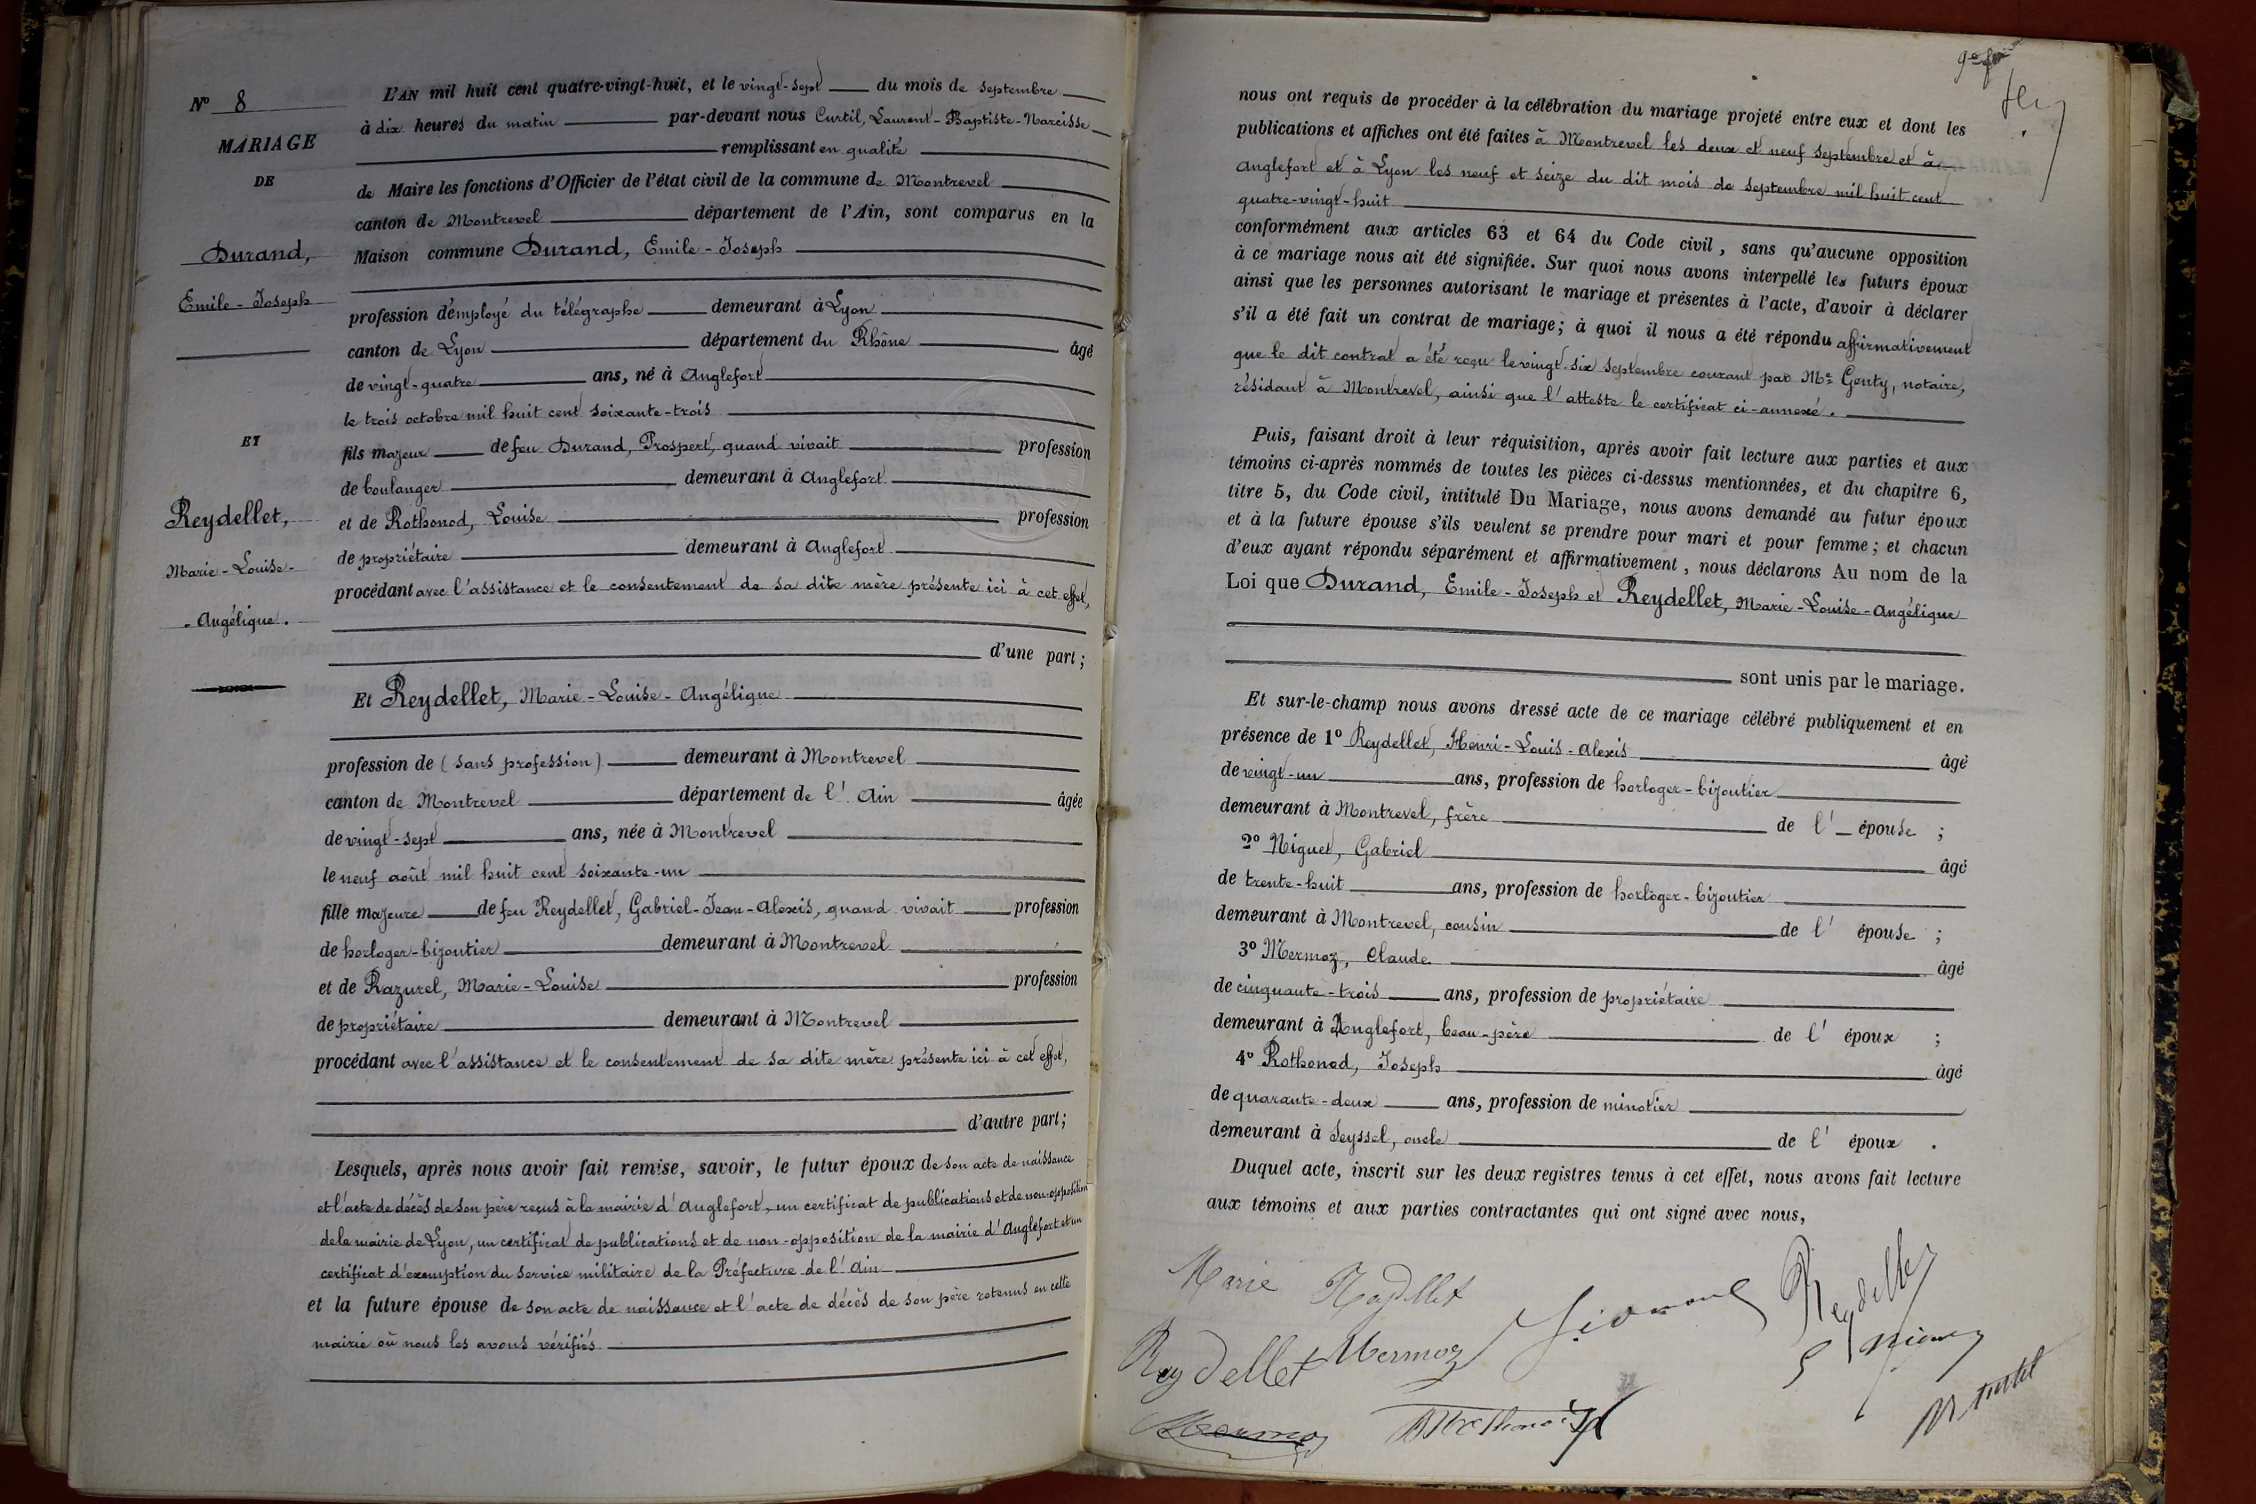 N° 8
MARIAGE
DE
Durand,
Emile - Joseph
ET
Reydellet,
Marie - Louise -
- Angélique.
L'AN mil huit cent quatre-vingt-huit, et le vingt-sept du mois de septembre
à dix heures du matin par-devant nous Curtil, Laurent - Baptiste - Narcisse
remplissant en qualité
de Maire les fonctions d'Officier de l'état civil de la commune de Montrevel
canton de Montrevel département de l'Ain, sont comparus en la
Maison commune Durand, Emile - Joseph
profession d'employé du télégraphe demeurant à Lyon
canton de Lyon département du Rhône âgé
de vingt-quatre ans, né à Anglefort
le trois octobre mil huit cent soixante-trois
fils majeur de feu Durand, Prospert, quand vivait profession
de boulanger demeurant à Anglefort
et de Rothonod, Louise profession
de propriétaire demeurant à Anglefort
procédant avec l'assistance et le consentement de sa dite mère présente ici à cet effet,
d'une part ;
Et Reydellet, Marie - Louise - Angélique
profession de (sans profession) demeurant à Montrevel
canton de Montrevel département de l'Ain âgée
de vingt-sept ans, née à Montrevel
le neuf août mil huit cent soixante-un
fille majeure de feu Reydellet, Gabriel-Jean-Alexis, quand vivait profession
de horloger-bijoutier demeurant à Montrevel
et de Razurel, Marie - Louise profession
de propriétaire demeurant à Montrevel
procédant avec l'assistance et le consentement de sa dite mère présente ici à cet effet,
d'autre part ;
Lesquels, après nous avoir fait remise, savoir, le futur époux de son acte de naissance
et l'acte de décès de son père reçus à la mairie d'Anglefort, un certificat de publications et de non-opposition
de la mairie de Lyon, un certificat de publications et de non-opposition de la mairie d'Anglefort et un
certificat d'exemption du service militaire de la Préfecture de l'Ain
et la future épouse de son acte de naissance et l'acte de décès de son père retenus en cette
mairie où nous les avons vérifiés
nous ont requis de procéder à la célébration du mariage projeté entre eux et dont les
publications et affiches ont été faites à Montrevel les deux et neuf septembre et à
Anglefort et à Lyon les neuf et seize du dit mois de septembre mil huit cent
quatre-vingt-huit
conformément aux articles 63 et 64 du Code civil, sans qu'aucune opposition
à ce mariage nous ait été signifiée. Sur quoi nous avons interpellé les futurs époux
ainsi que les personnes autorisant le mariage et présentes à l'acte, d'avoir à déclarer
s'il a été fait un contrat de mariage ; à quoi il nous a été répondu affirmativement
que le dit contrat a été reçu le vingt-six septembre courant par Me Genty, notaire,
résidant à Montrevel, ainsi que l'atteste le certificat ci-annexé.
Puis, faisant droit à leur réquisition, après avoir fait lecture aux parties et aux
témoins ci-après nommés de toutes les pièces ci-dessus mentionnées, et du chapitre 6,
titre 5, du Code civil, intitulé Du Mariage, nous avons demandé au futur époux
et à la future épouse s'ils veulent se prendre pour mari et pour femme ; et chacun
d'eux ayant répondu séparément et affirmativement, nous déclarons Au nom de la
Loi que Durand, Emile - Joseph et Reydellet, Marie - Louise - Angélique
sont unis par le mariage.
Et sur-le-champ nous avons dressé acte de ce mariage célébré publiquement et en
présence de 1° Reydellet, Henri - Louis - Alexis âgé
de vingt-un ans, profession de horloger-bijoutier
demeurant à Montrevel, frère de l' épouse ;
2° Niguet, Gabriel âgé
de trente-huit ans, profession de horloger-bijoutier
demeurant à Montrevel, cousin de l' épouse ;
3° Mermoz, Claude âgé
de cinquante-trois ans, profession de propriétaire
demeurant à Anglefort, beau-père de l' époux ;
4° Rothonod, Joseph âgé
de quarante-deux ans, profession de minotier
demeurant à Seyssel, oncle de l' époux .
Duquel acte, inscrit sur les deux registres tenus à cet effet, nous avons fait lecture
aux témoins et aux parties contractantes qui ont signé avec nous,
Marie Reydellet Reydellet
Reydellet Mermoz